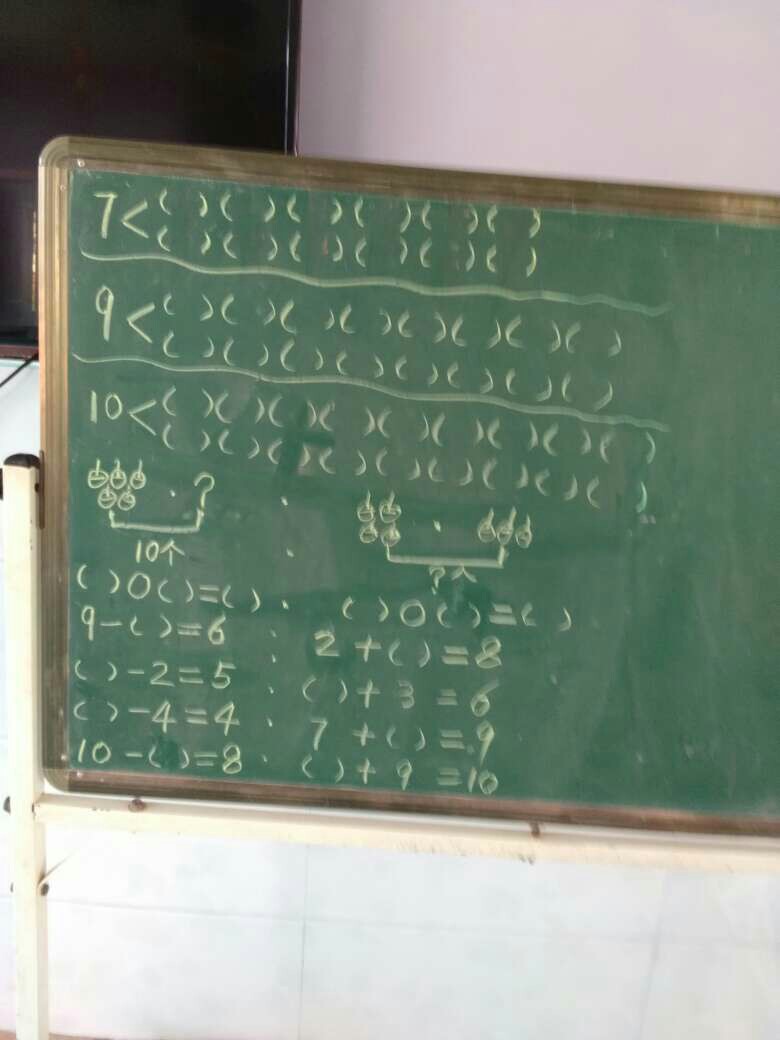 7<( )( )( )( )( )( )
( )( )( )( )( )( )
9<( )( )( )( )( )( )( )( )
( )( )( )( )( )( )( )( )
10<( )( )( )( )( )( )( )( )( )
( )( )( )( )( )( )( )( )( )
?
10个
?个
( )○( )=( )
( )○( )=( )
9-( )=6
2+( )=8
( )-2=5
( )+3=6
( )-4=4
7+( )=9
10-( )=8
( )+9=10